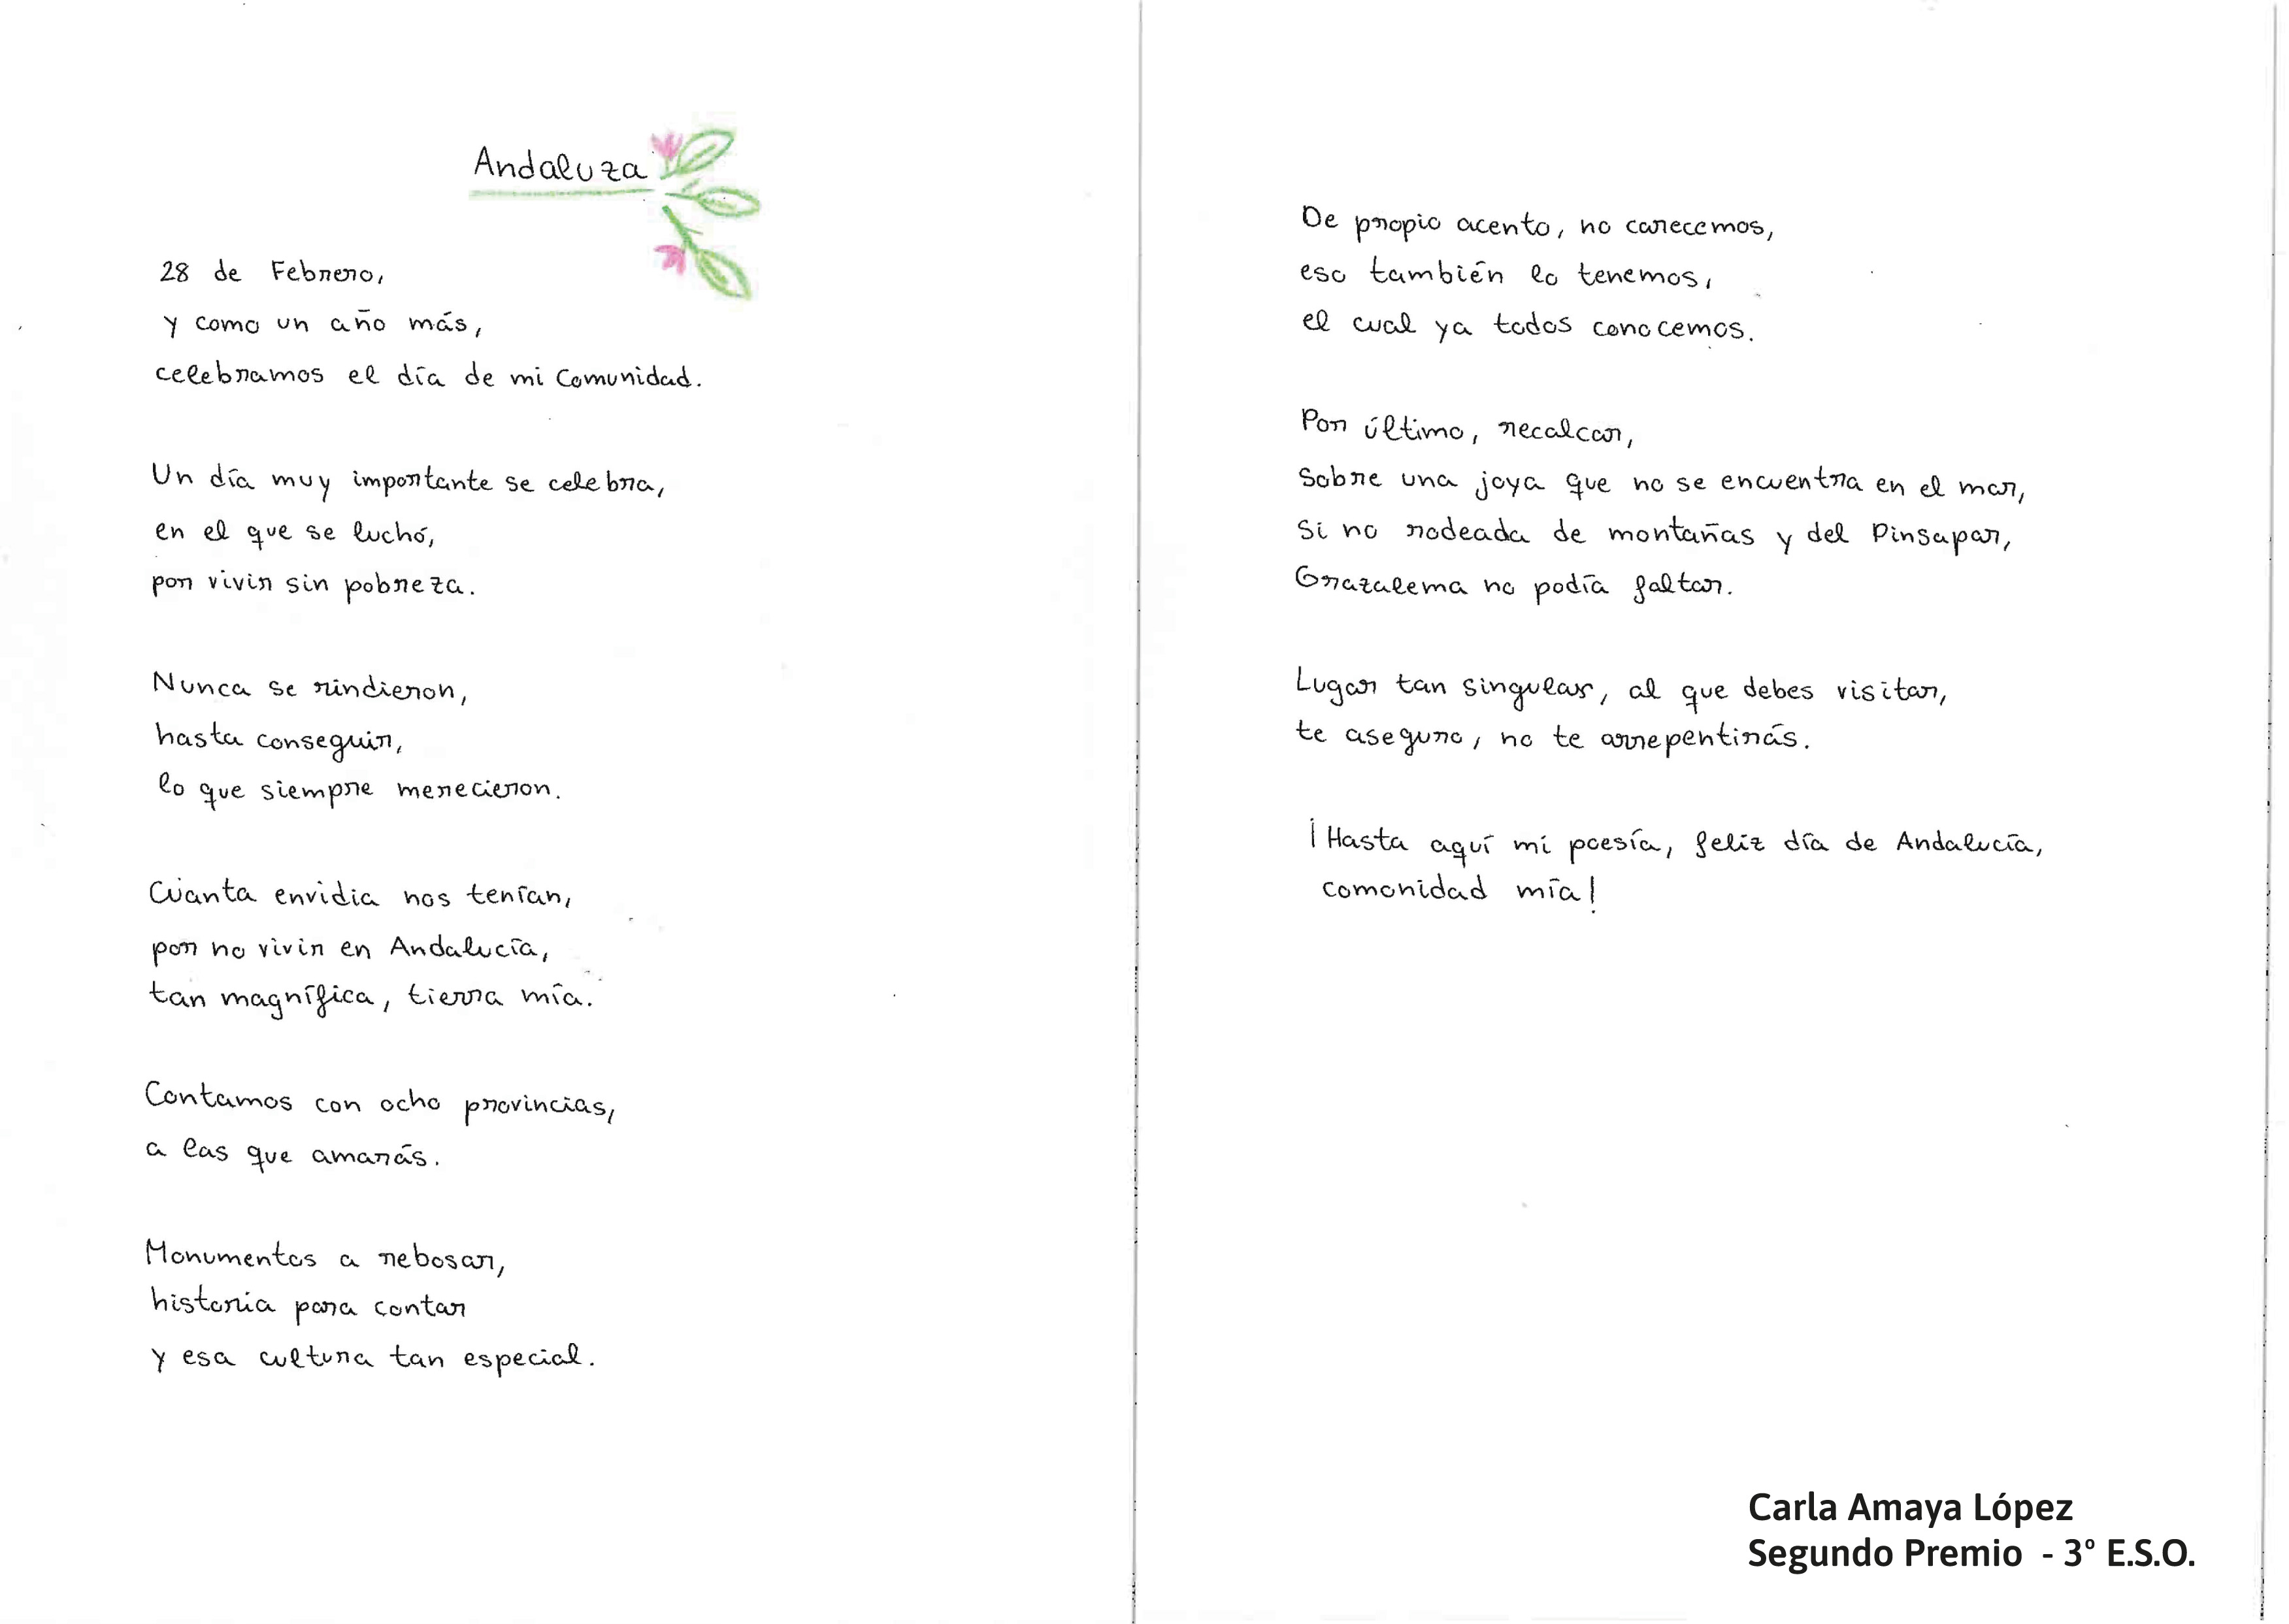 Andaluza
28 de Febrero,
y como un año más,
celebramos el día de mi Comunidad.
Un día muy importante se celebra,
en el que se luchó,
por vivir sin pobreza.
Nunca se rindieron,
hasta conseguir,
lo que siempre merecieron.
Cuanta envidia nos tenían,
por no vivir en Andalucía,
tan magnífica, tierra mía.
Contamos con ocho provincias,
a las que amarás.
Monumentos a rebosar,
historia para contar
y esa cultura tan especial.
De propio acento, no carecemos,
eso también lo tenemos,
el cual ya todos conocemos.
Por último, recalcar,
Sobre una joya que no se encuentra en el mar,
Si no rodeada de montañas y del Pinsapar,
Grazalema no podía faltar.
Lugar tan singular, al que debes visitar,
te aseguro, no te arrepentirás.
¡Hasta aquí mi poesía, feliz día de Andalucía,
comonidad mía!
Carla Amaya López
Segundo Premio - 3º E.S.O.